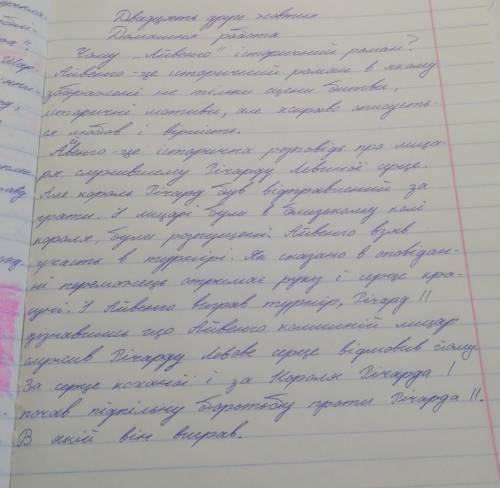 Двадцять друге жовтня
Домашня робота
Чому "Айвенго" історичний роман?
Айвенго - це історичний роман в якому
зображені не тільки сцени битви,
історичні мотиви, але яскраво описуєть-
ся любов і вірність.
Айвенго - це історична розповідь про лица-
ря служившому Річарду Левиної серце.
Але король Річард був відправлений за
грати. І лицарі були в близькому колі
короля, були розпущені. Айвенго взяв
участь в турнірі. Як сказано в оповідан-
ні переможець отримає руку і серце кра-
луні. І Айвенго виграв турнір, Річард II
дізнавшись що Айвенго колишній лицар
служив Річарду Левове серце відмовив йому.
За серце коханої і за Короля Річарда I
почав підпільну боротьбу проти Річарда II.
В якій він виграв.